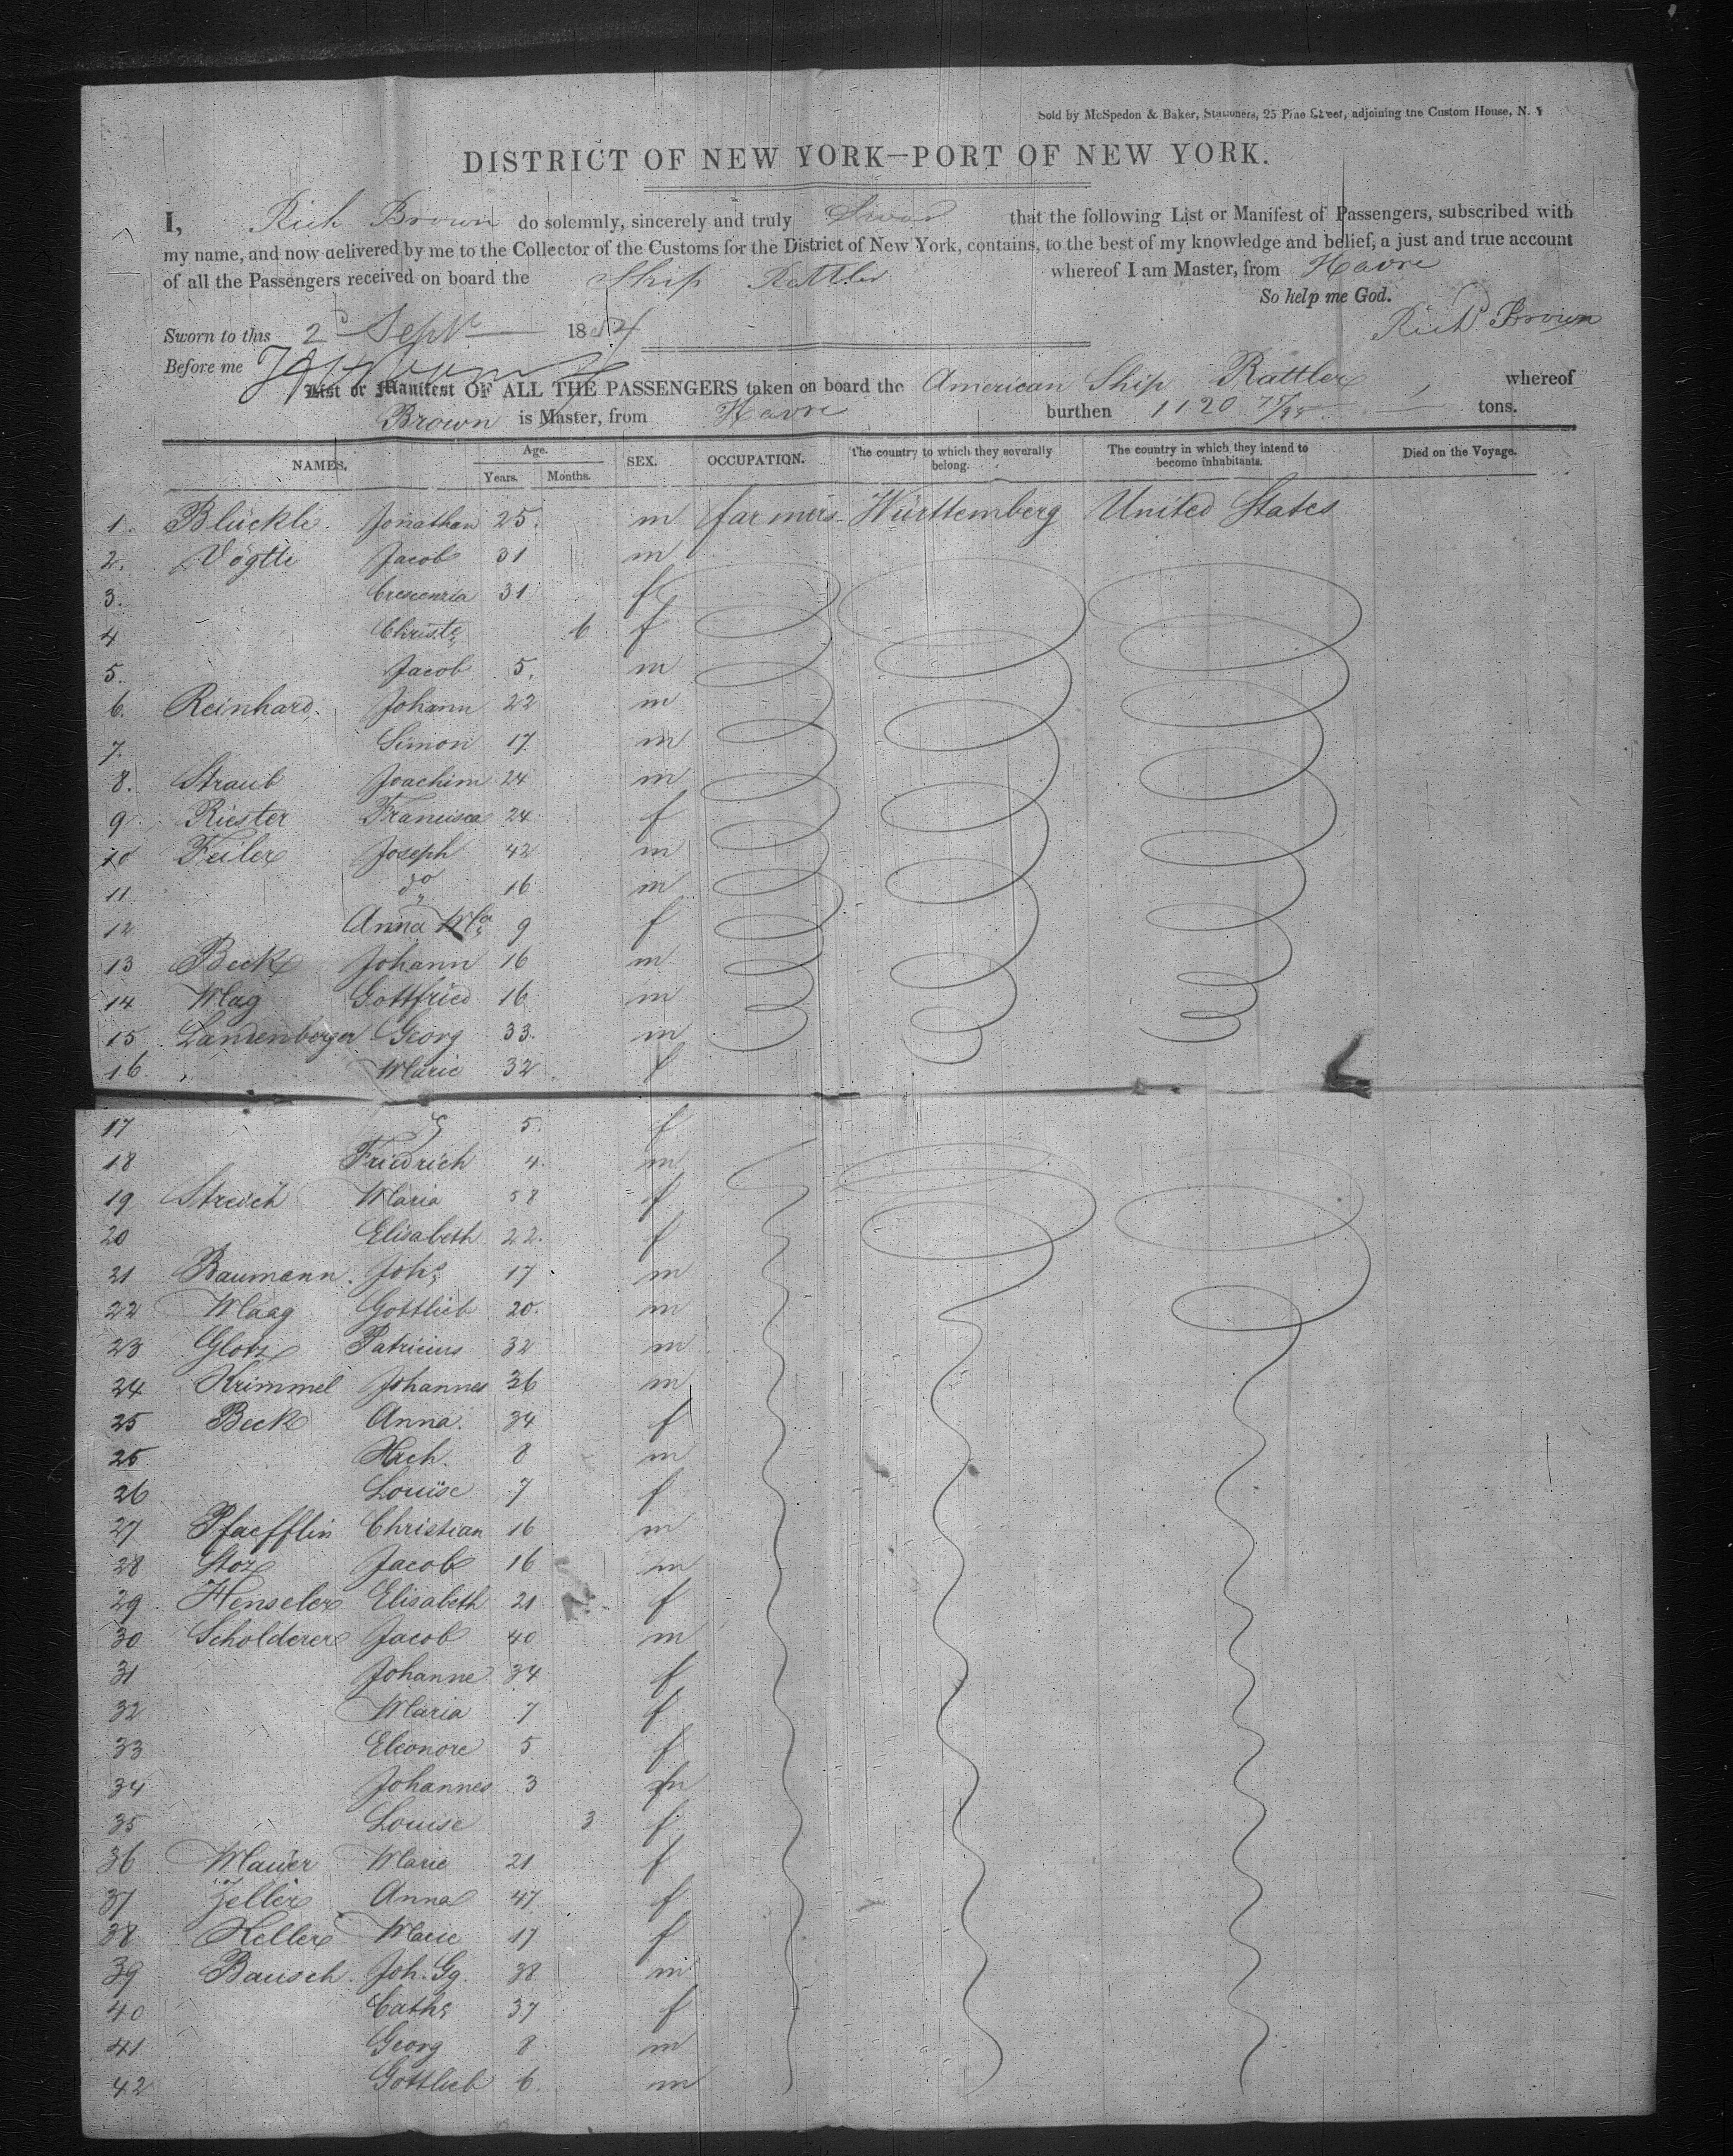 Sold by McSpedon & Baker, Stationers, 25 Pine Street, adjoining the Custom House, N. Y
DISTRICT OF NEW YORK—PORT OF NEW YORK.
I, Rich Brown do solemnly, sincerely and truly Swear that the following List or Manifest of Passengers, subscribed with
my name, and now delivered by me to the Collector of the Customs for the District of New York, contains, to the best of my knowledge and belief, a just and true account
of all the Passengers received on board the Ship Rattler whereof I am Master, from Havre
So help me God.
Sworn to this 2d Sept 1854 Richd Brown
Before me
List or Manifest OF ALL THE PASSENGERS taken on board the American Ship Rattler, whereof
Brown is Master, from Havre burthen 1120 75/95 tons.
NAMES. Age. Years. Months. SEX. OCCUPATION. The country to which they severally belong. The country in which they intend to become inhabitants. Died on the Voyage.
1. Bluckle. Jonathan 25. m farmers Württemberg United States
2. Vögtle Jacob 31 m
3. Crescenzia 31 f
4 Christe 6 f
5. Jacob 5. m
6. Reinhard. Johann 22 m
7. Simon 17 m
8. Straub Joachim 24 m
9 Riester Francisca 24 f
10 Feiler Joseph 42 m
11 do 16 m
12 Anna Ma 9 f
13 Beck Johann 16 m
14 Mag Gottfried 16 m
15 Landenberger Georg 33. m
16 Marie 32 f
17 5. f
18 Friedrich 4. m
19 Streich Maria 58 f
20 Elisabeth 22. f
21 Baumann. Johs 17 m
22 Maag Gottlieb 20. m
23 Glotz Patricius 32 m
24 Krimmel Johannes 36 m
25 Beck Anna. 34 f
25 Hrch. 8 m
26 Louise 7 f
27 Pfaefflin Christian 16 m
28 Stoz Jacob 16 m
29 Henseler Elisabeth 21 f
30 Scholderer Jacob 40 m
31 Johanne 34 f
32 Maria 7 f
33 Eleonore 5 f
34 Johannes 3 m
35 Louise 3 f
36 Mauer Marie 21 f
37 Zeller Anna 47 f
38 Keller Marie 17 f
39 Bausch. Joh. Gg. 38 m
40 Cath. 37 f
41 Georg 8 m
42 Gottlieb 6. m